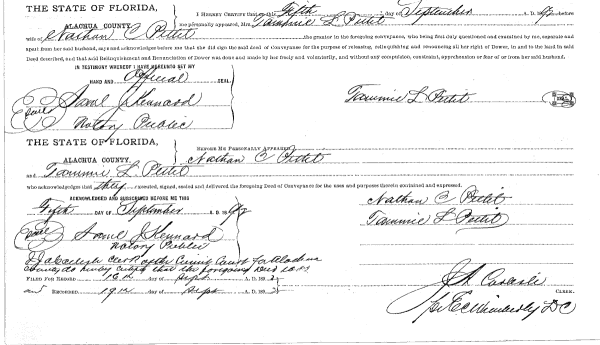 THE STATE OF FLORIDA,
ALACHUA COUNTY.
I HEREBY CERTIFY that on this Fifth day of September A. D. 189 before
me personally appeared, Mrs. Tammie L Pettit
wife of Nathan C Pettit the grantor in the foregoing conveyance, who being first duly questioned and examined by me, separate and
apart from her said husband, say and acknowledge before me that she did sign the said deed of Conveyance for the purpose of releasing, relinquishing and renouncing all her right of Dower, in and to the land in said
Deed described, and that said Relinquishment and Renunciation of Dower was done and made by her freely and voluntarily, and without any compulsion, constraint, apprehension or fear of or from her said husband.
IN TESTIMONY WHEREOF I HAVE HEREUNTO SET MY
HAND AND Official SEAL
Saml J Kennard
Notary Public
Tammie L Pettit
THE STATE OF FLORIDA,
ALACHUA COUNTY.
BEFORE ME PERSONALLY APPEARED
Nathan C Pettit
and Tammie L. Pettit
who acknowledges that they executed, signed, sealed and delivered the foregoing Deed of Conveyance for the uses and purposes therein contained and expressed.
ACKNOWLEDGED AND SUBSCRIBED BEFORE ME THIS
Fifth DAY OF September A. D. 189
Nathan C Pettit
Tammie L Pettit
Saml J Kennard
Notary Public
Clerk of the Circuit Court for Alachua
County do hereby certify that the foregoing Deed was
FILED FOR RECORD 19th day of Sept A. D. 189
and RECORDED 19th day of Sept A. D. 189
CLERK.
Wimberly DC